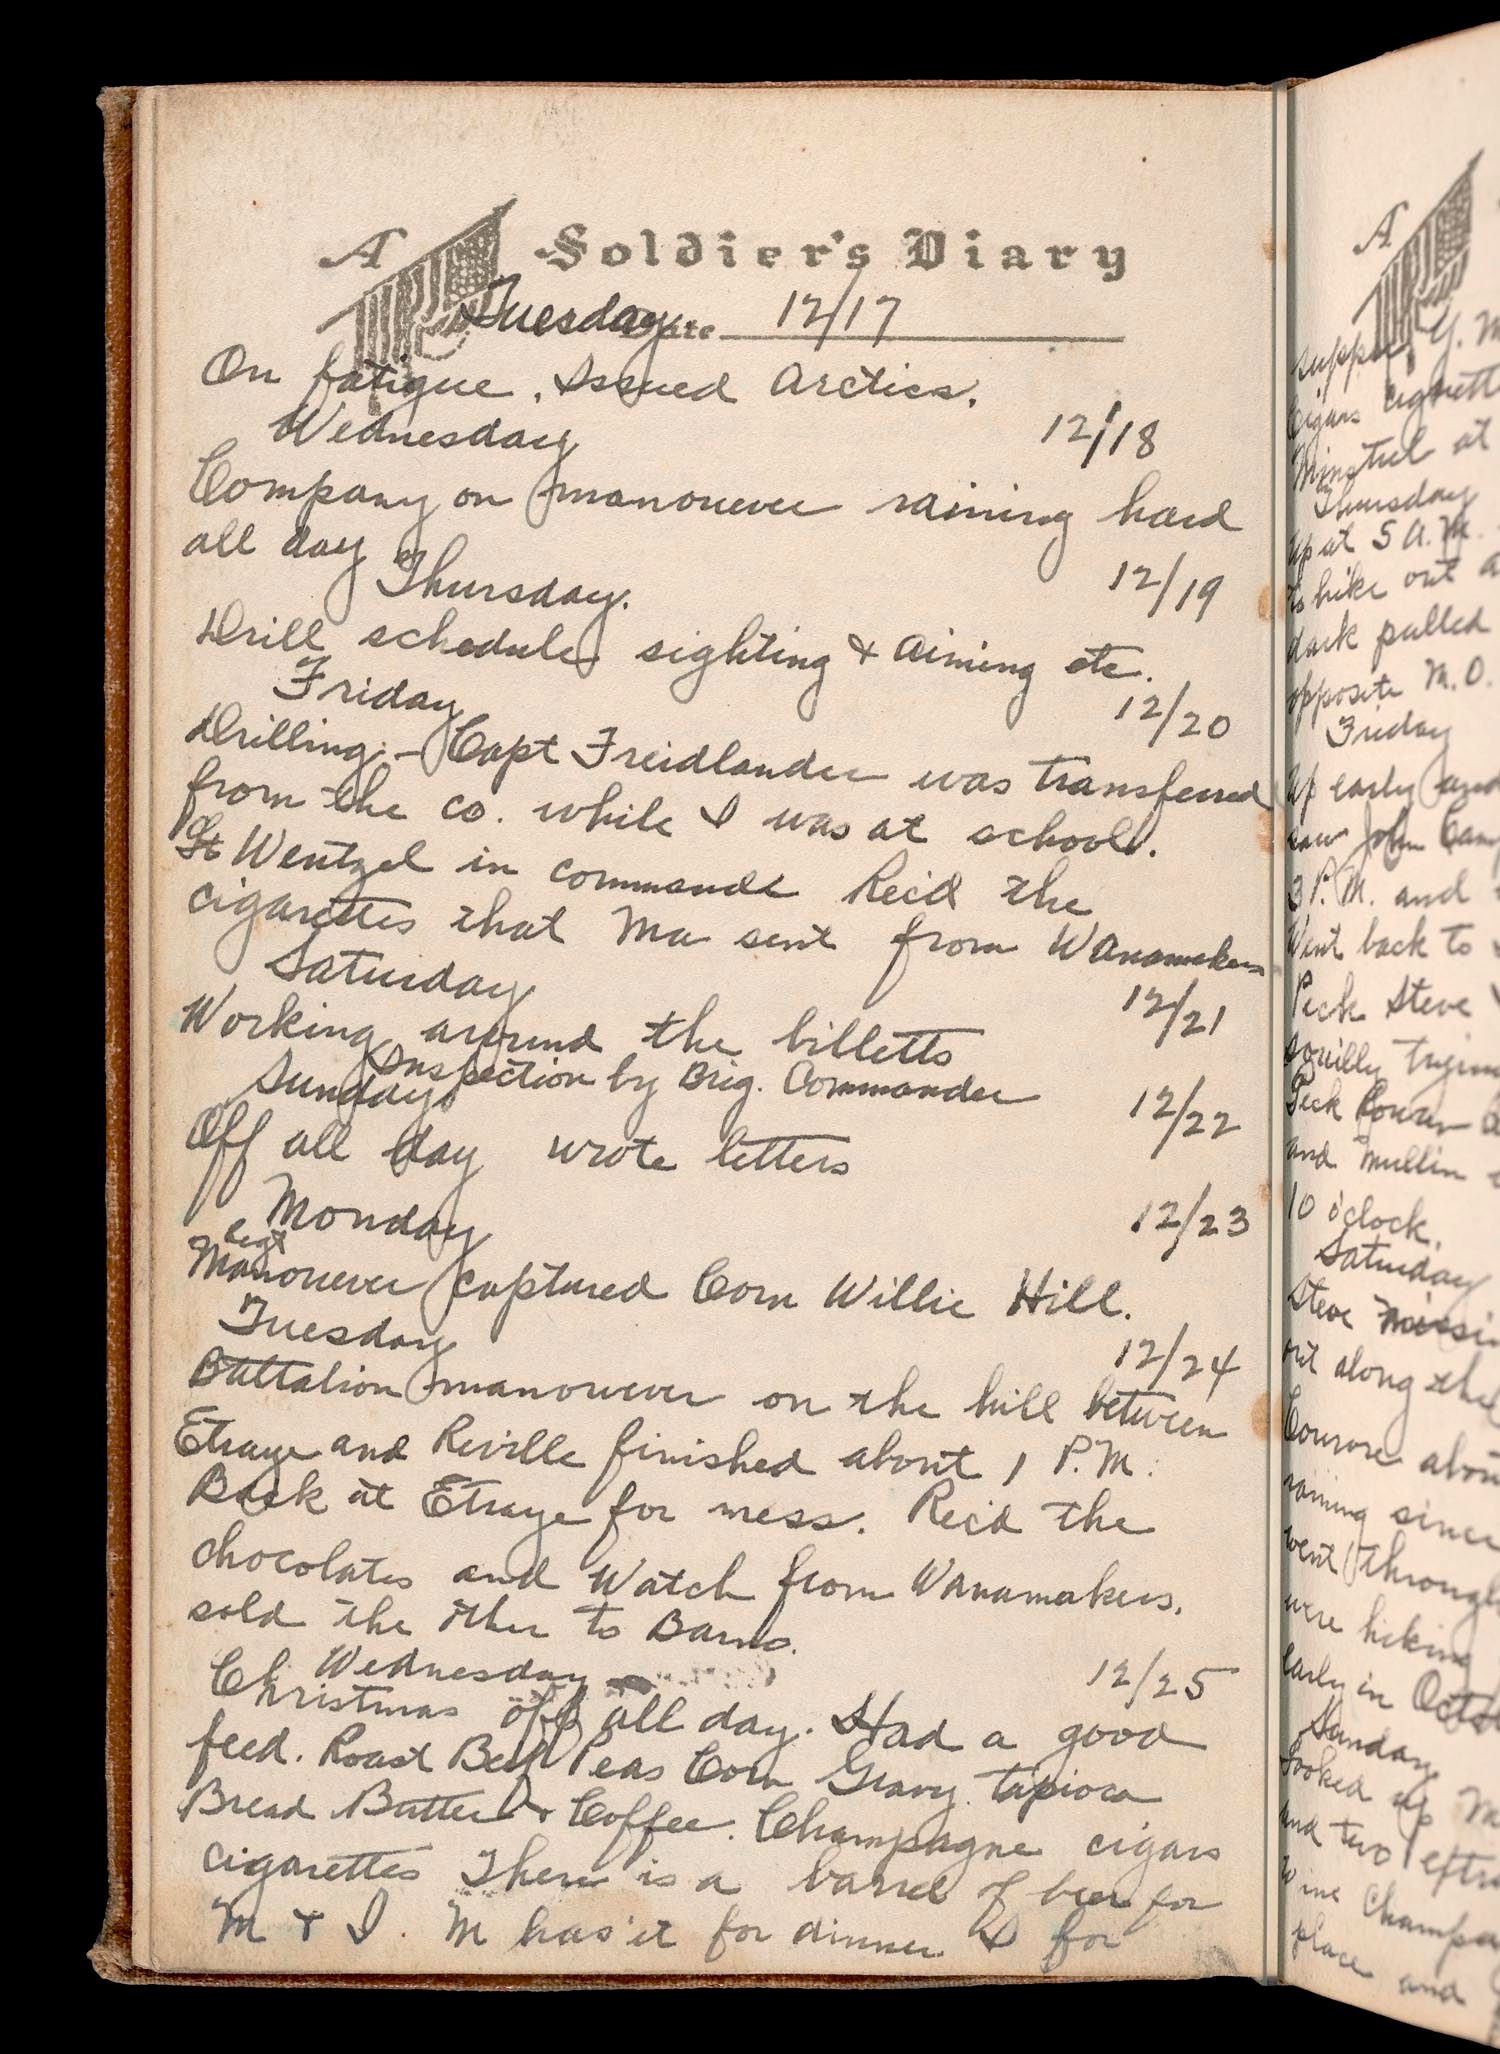 A Soldier's Diary
Tuesday Date 12/17
On fatigue. Issued Arctics.
Wednesday 12/18
Company on manouever raining hard
all day
Thursday. 12/19
Drill schedule sighting & aiming etc.
Friday 12/20
Drilling - Capt Freidlander was transferred
from the co. while I was at school.
Lt Wentzel in command Rec'd the
cigarettes that Ma sent from Wanamakers
Saturday 12/21
Working around the billetts
Inspection by Brig. Commander
Sunday 12/22
Off all day wrote letters
Monday 12/23
Regt
Manouever captured Corn Willie Hill.
Tuesday 12/24
Battalion manouever on the hill between
Etraye and Reville finished about 1 P.M.
Back at Etraye for mess. Rec'd the
chocolates and Watch from Wanamakers.
sold the other to Barns.
Wednesday 12/25
Christmas off all day. Had a good
feed. Roast Beef Peas Corn Gravy tapioca
Bread Butter & Coffee. Champagne cigars
cigarettes There is a barrel of beer for
M & I. M has it for dinner I for
A
supper Y. M
Cigars cigarett
Minstrel at
Thursday
up at 5 A.M.
to hike out a
dark pulled
opposite M.O.
Friday
Up early and
saw John Cam
3 P.M. and
Went back to
Peck Steve

Peck
and Mullin
10 o'clock.
Saturday
Steve
out along the
abou
raining since
went through
were hiking
early in Octo
Sunday
Looked up M
and two
wine Champa
place and